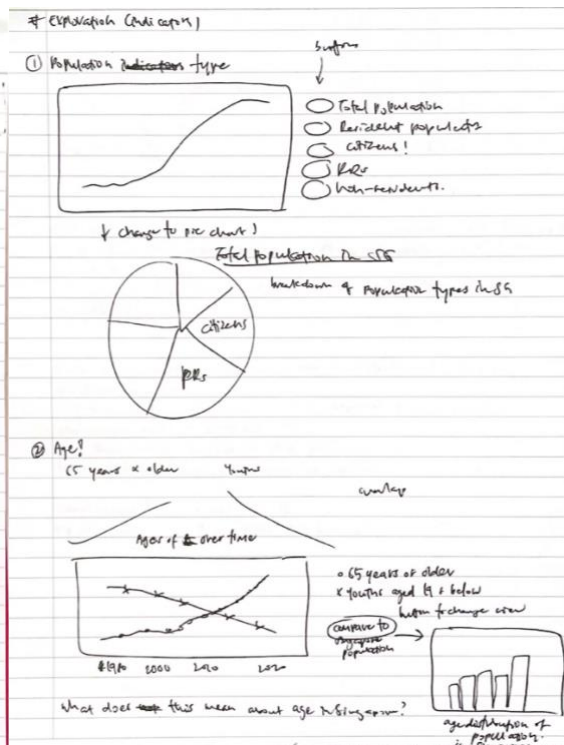 # Exploration (Indicators)
① Population indicators type
buttons
Total population
Resident population
citizens!
PRs
Non-residents.
↓ change to pie chart!
Total population in SG
breakdown of population types in SG
citizens
PRs
② Age?
65 years & older Youths
overlap
Ages of over time
o 65 years or older
x Youths aged 19 & below
button to change view
compare to
Singapore
population
1980 2000 2010 2020
What does this mean about age in Singapore?
age distribution of
population.